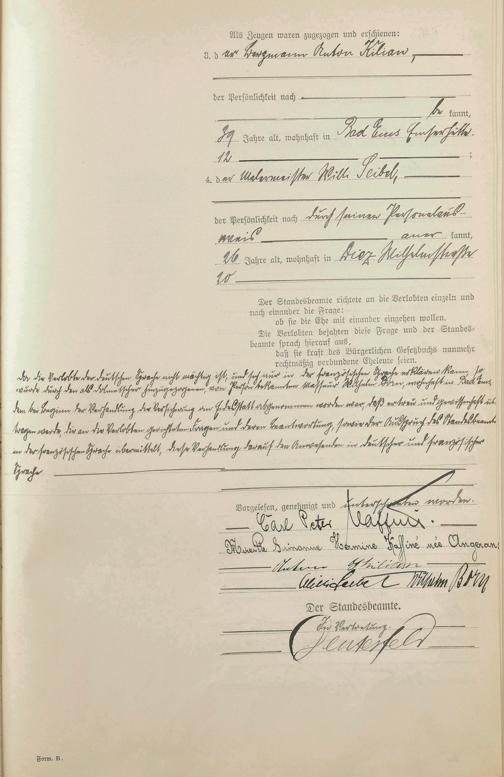 Als Zeugen waren zugezogen und erschienen:
3. d er Bergmann Anton Kilian,
der Persönlichkeit nach
be kannt,
39 Jahre alt, wohnhaft in Bad Ems Emserhütte
12 ;
4. d er Malermeister Willi Seibel,
der Persönlichkeit nach durch seinen Personalaus-
weis aner kannt,
26 Jahre alt, wohnhaft in Diez Wilhelmstraße
20
Der Standesbeamte richtete an die Verlobten einzeln und
nach einander die Frage:
ob sie die Ehe mit einander eingehen wollen.
Die Verlobten bejahten diese Frage und der Standes-
beamte sprach hierauf aus,
daß sie kraft des Bürgerlichen Gesetzbuchs nunmehr
rechtmäßig verbundene Eheleute seien.
Da die Verlobte der deutschen Sprache nicht mächtig ist, und sich nur in der französischen Sprache erklären kann, so
wurde durch den als Dolmetscher hinzugezogenen, von Person bekannten Wilhelm Born, wohnhaft in Bad Ems,
dem bei Beginn der Verhandlung die Versicherung an Eidesstatt abgenommen worden war, daß er treu und gewissenhaft über-
tragen werde, die an die Verlobten gerichteten Fragen und deren Beantwortung, sowie der Ausspruch des Standesbeamten
in der französischen Sprache übermittelt, diese Verhandlung darauf den Anwesenden in deutscher und französischer
Sprache
Vorgelesen, genehmigt und unterschrieben worden.
Carl Peter Kaffiné.
Simonne Hermine Kaffiné née Angeran
Anton Kilian
Willi Seibel Wilhelm Born
Der Standesbeamte.
In Vertretung
Form. B.